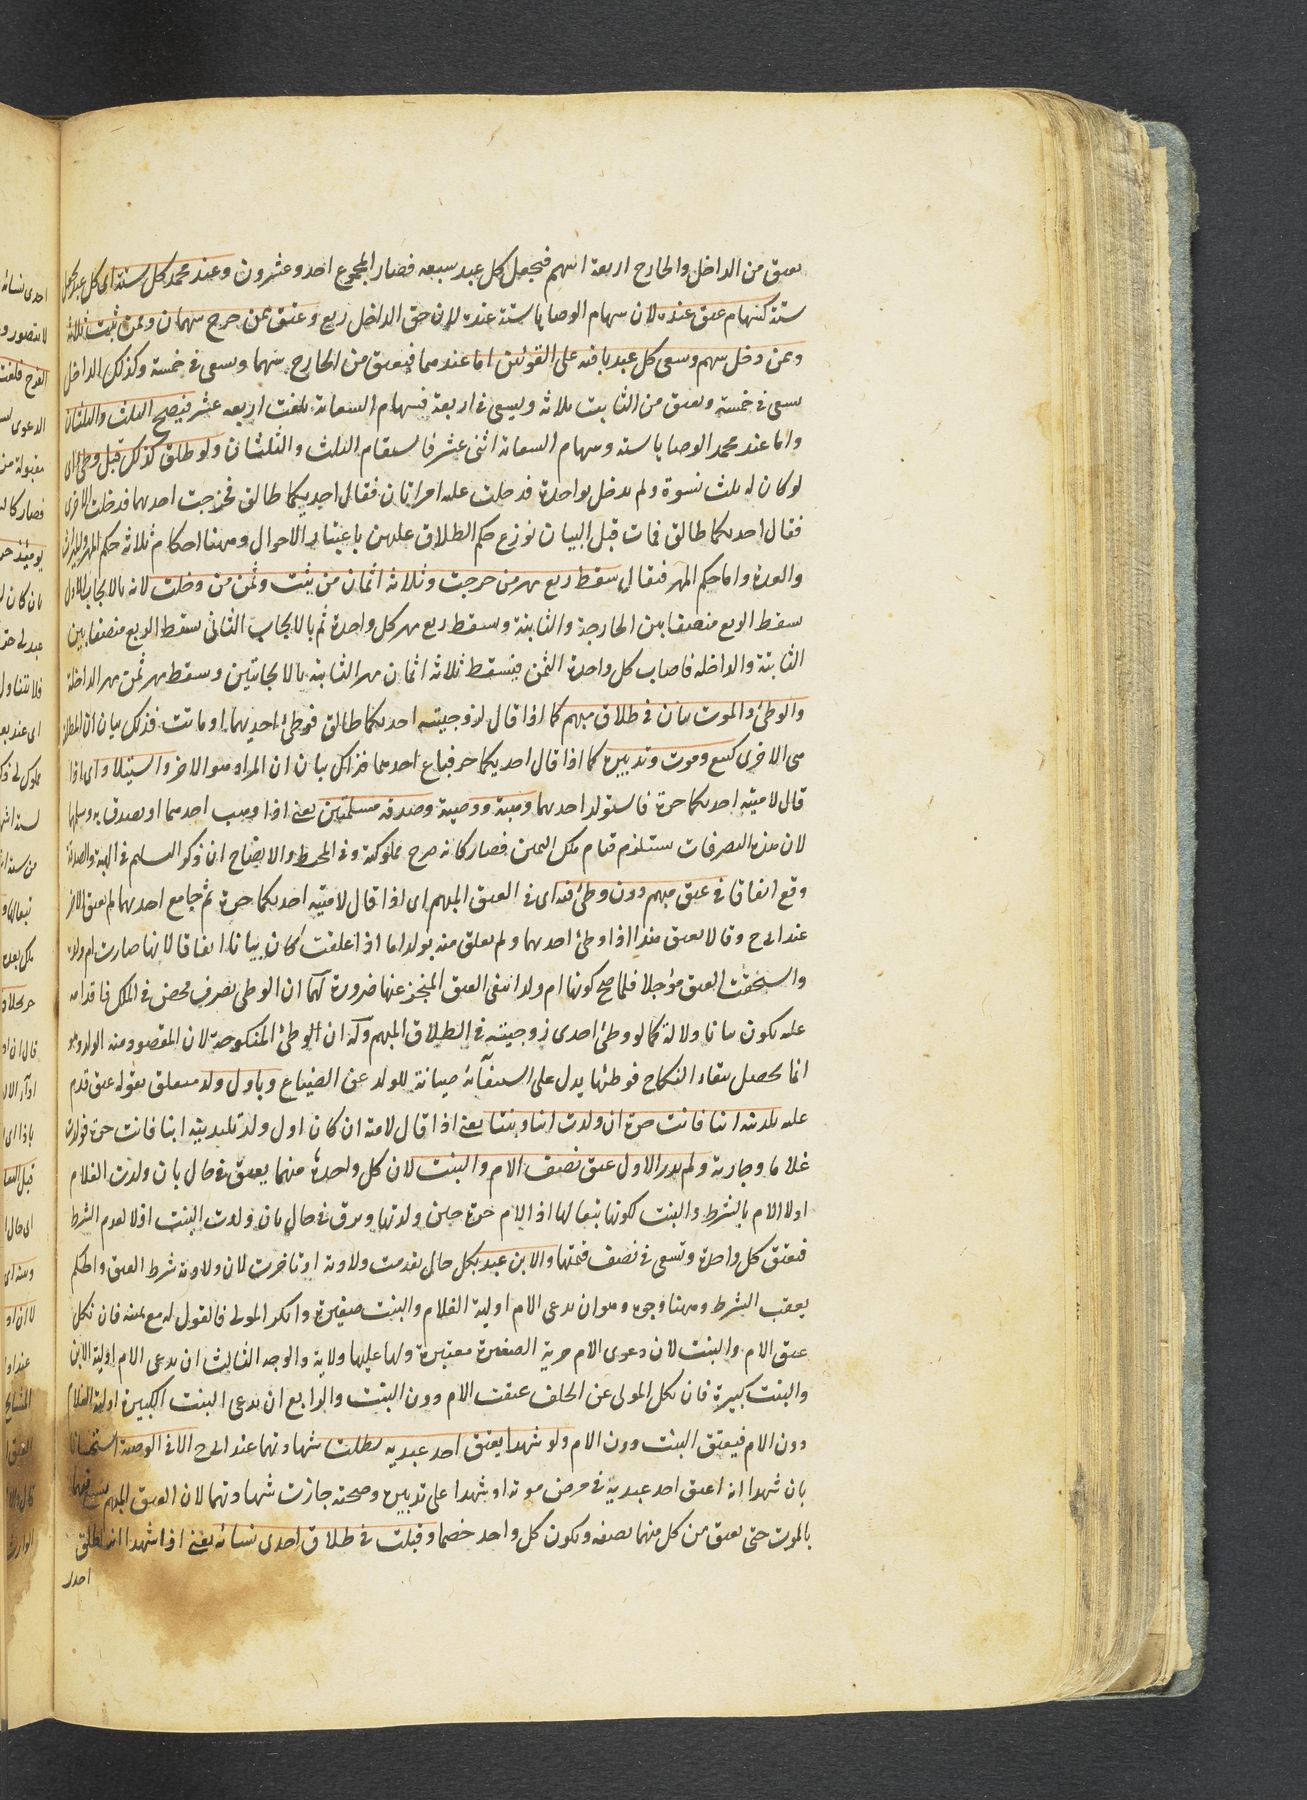 يعتق من الداخل والخارج اربعة اسهم فيجعل كل عبد سبعه فصار المجموع احد وعشرون وعند محمد كل ستة اى كل عبد يجعل
ستة كسهام عتق عنده لان سهام الوصايا ستة عنده لان حق الداخل ربع وعتق عمن خرج سهمان وعمن ثبت ثلاثة
وعمن دخل سهم وسعى كل عبد باقيه على القولين اما عندهما فيعتق من الخارج سهما وسعى فى خمسة وكذلك الداخل
يسعى فى خمسة ويعتق من الثابت ثلاثة ويسعى فى اربعة فسهام السعاية بلغت اربعة عشر فيصح الثلث والثلثان
واما عند محمد الوصايا ستة وسهام السعاية اثنى عشر فاستقام الثلث والثلثان ولو طلق كذلك قبل وطئ اى
لو كان له ثلث نسوة ولم يدخل بواحدة فدخلت عليه امراتان فقال احديكما طالق فخرجت احديهما فدخلت الاخرى
فقال احديكما طالق فمات قبل البيان توزع حكم الطلاق عليهن باعتبار الاحوال وههنا احكام ثلاثة حكم المهر والميراث
والعدة واما حكم المهر فيقال سقط ربع مهر من خرجت وثلاثة اثمان من ثبتت وثمن من دخلت لانه بالايجاب الاول
سقط الربع منصفا بين الخارجة والثابتة وسقط ربع مهر كل واحدة ثم بالايجاب الثانى سقط الربع منصفا بين
الثابتة والداخله فاصاب كل واحدة الثمن فيسقط ثلاثة اثمان مهر الثابتة بالايجابين وسقط مهر ثمن مهر الداخلة
والوطئ والموت بيان فى طلاق مبهم كما اذا قال لزوجيته احديكما طالق فوطئ احديهما او ماتت فذلك بيان ان المطلقة
هى الاخرى كبيع وموت وتدبير كما اذا قال احديكما حر فباع احدهما فذلك بيان ان المراد هو الاخر واستيلاد اى اذا
قال لامتيه احديكما حرة فاستولد احديهما وهبة ووصية وصدقه مسلمتين يعنى اذا وهب احدهما او تصدق به وسلمها
لان هذه التصرفات تستلزم قيام ملك اليمين فصار كانه صرح بمملوكيته وفى المحيط والايضاح ان ذكر التسليم فى الهبة والصدقة
وقع اتفاقا فى عتق مبهم دون وطئ فيه اى فى العتق المبهم اى اذا قال لامتيه احديكما حرة ثم جامع احديهما لم يعتق الاخرى
عند ابى ح وقالا يعتق هذا اذا وطئ احديهما ولم يعلق منه بولد اما اذا علقت كان بيانا اتفاقا لانها صارت ام ولد
واستحقت العتق مؤجلا فلما صح كونها ام ولد انتفى العتق المنجز عنها ضرورة لهما ان الوطى تصرف محض فى الملك فاقدامه
عليه يكون بيانا ودلالة كما لو وطئ احدى زوجيته فى الطلاق المبهم وله ان الوطئ المنكوحة لان المقصود منه الولد وهو
انما يحصل ببقاء النكاح فوطئها يدل على استبقائه صيانة للولد عن الضياع وباول ولد متعلق بقوله عتق قدم
عليه تلدينه ابنا فانت حرة ان ولدت ابنا وبنتا يعنى اذا قال لامته ان كان اول ولد تلدينه ابنا فانت حرة فولدت
غلاما وجارية ولم يدر الاول عتق نصف الام والبنت لان كل واحدة منهما يعتق فى حال بان ولدت الغلام
اولا الام بالشرط والبنت لكونها تبعا لها اذ الام حرة حين ولدتها ويرق فى حال بان ولدت البنت اولا لعدم الشرط
فيعتق كل واحدة وتسعى فى نصف قيمتها والابن عبد بكل حال تقدمت ولادته او تاخرت لان ولادته شرط العتق والحكم
يعقب الشرط وههنا وجوه وهو ان يدعى الام اولية الغلام والبنت صغيرة وانكر المولى فالقول له مع يمينه فان نكل
عتق الام والبنت لان دعوى الام حرية الصغيرة معتبرة ولها عليها ولاية والوجه الثالث ان يدعى الام اولية الابن
والبنت كبيرة فان نكل المولى عن الحلف عتقت الام دون البنت والرابع ان يدعى البنت الكبيرة اولية الغلام
دون الام فيعتق البنت دون الام ولو شهدا بعتق احد عبديه بطلت شهادتهما عند ابى ح الا فى الوصية استحسانا
بان شهدا انه اعتق احد عبديه فى مرض موته او شهدا على تدبيره وصحته جازت شهادتهما لان العتق المبهم يشيع فيهما
بالموت حتى يعتق من كل منهما نصفه ويكون كل واحد خصما وقبلت فى طلاق احدى نسائه يعنى اذا شهدا انه طلق
احدى